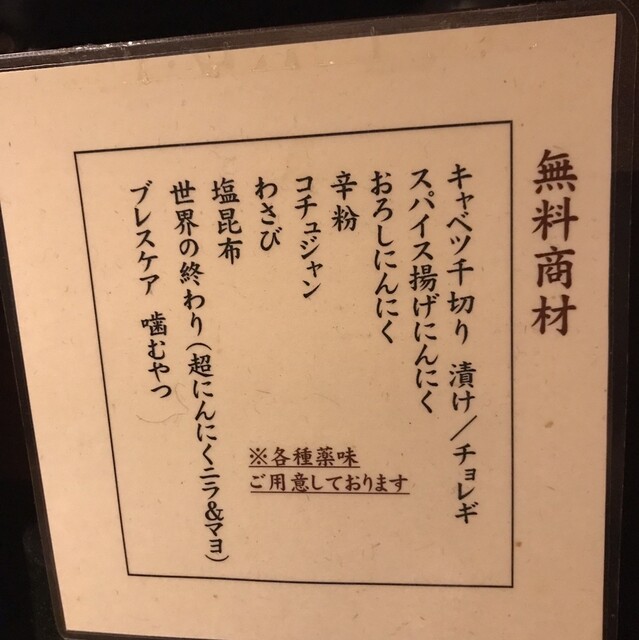 無料商材
キャベツ千切り 漬け/チョレギ
スパイス揚げにんにく
おろしにんにく
辛粉
コチュジャン
わさび
塩昆布
世界の終わり(超にんにくニラ&マヨ)
ブレスケア 噛むやつ
※各種薬味
ご用意しております